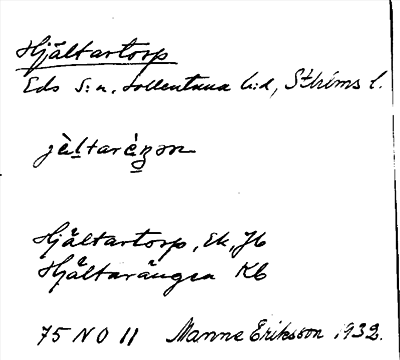 Hjältartorp
Eds s:n, Sollentuna h:d, Sthlms l.
jæ̀ltaræ̀ŋən
Hjältartorp, Ek, Jb
Hjältarängen Kb
75 NO 11 Manne Eriksson 1932.